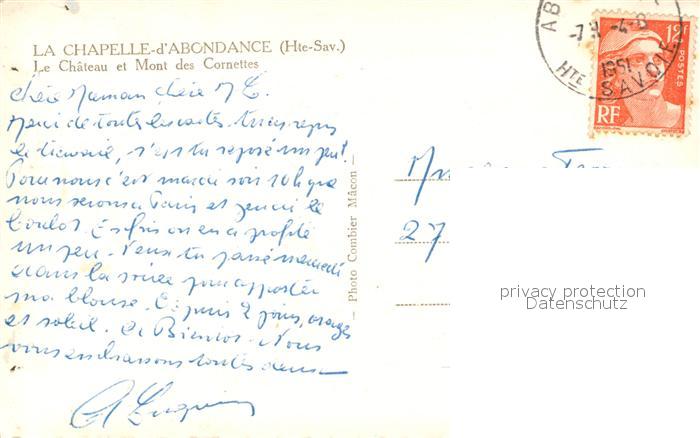 LA CHAPELLE-d'ABONDANCE (Hte-Sav.)
Le Château et Mont des Cornettes
Chère Maman chère M
Merci de toutes les cartes. tu as repris
le travail, t'es tu reposé un peu?
Pour nous c'est mardi soir 10h que
nous serons à Paris et jeudi le
boulot. Enfin on en a profité
un peu. Veux tu passer mercredi
dans la soirée pour apporter
ma blouse. Depuis 2 jours, orages
et soleil. A Bientôt. Nous
vous embrassons toutes deux
— Photo Combier Mâcon —
HTE SAVOIE
1951
12
POSTES
RF
27
privacy protection
Datenschutz